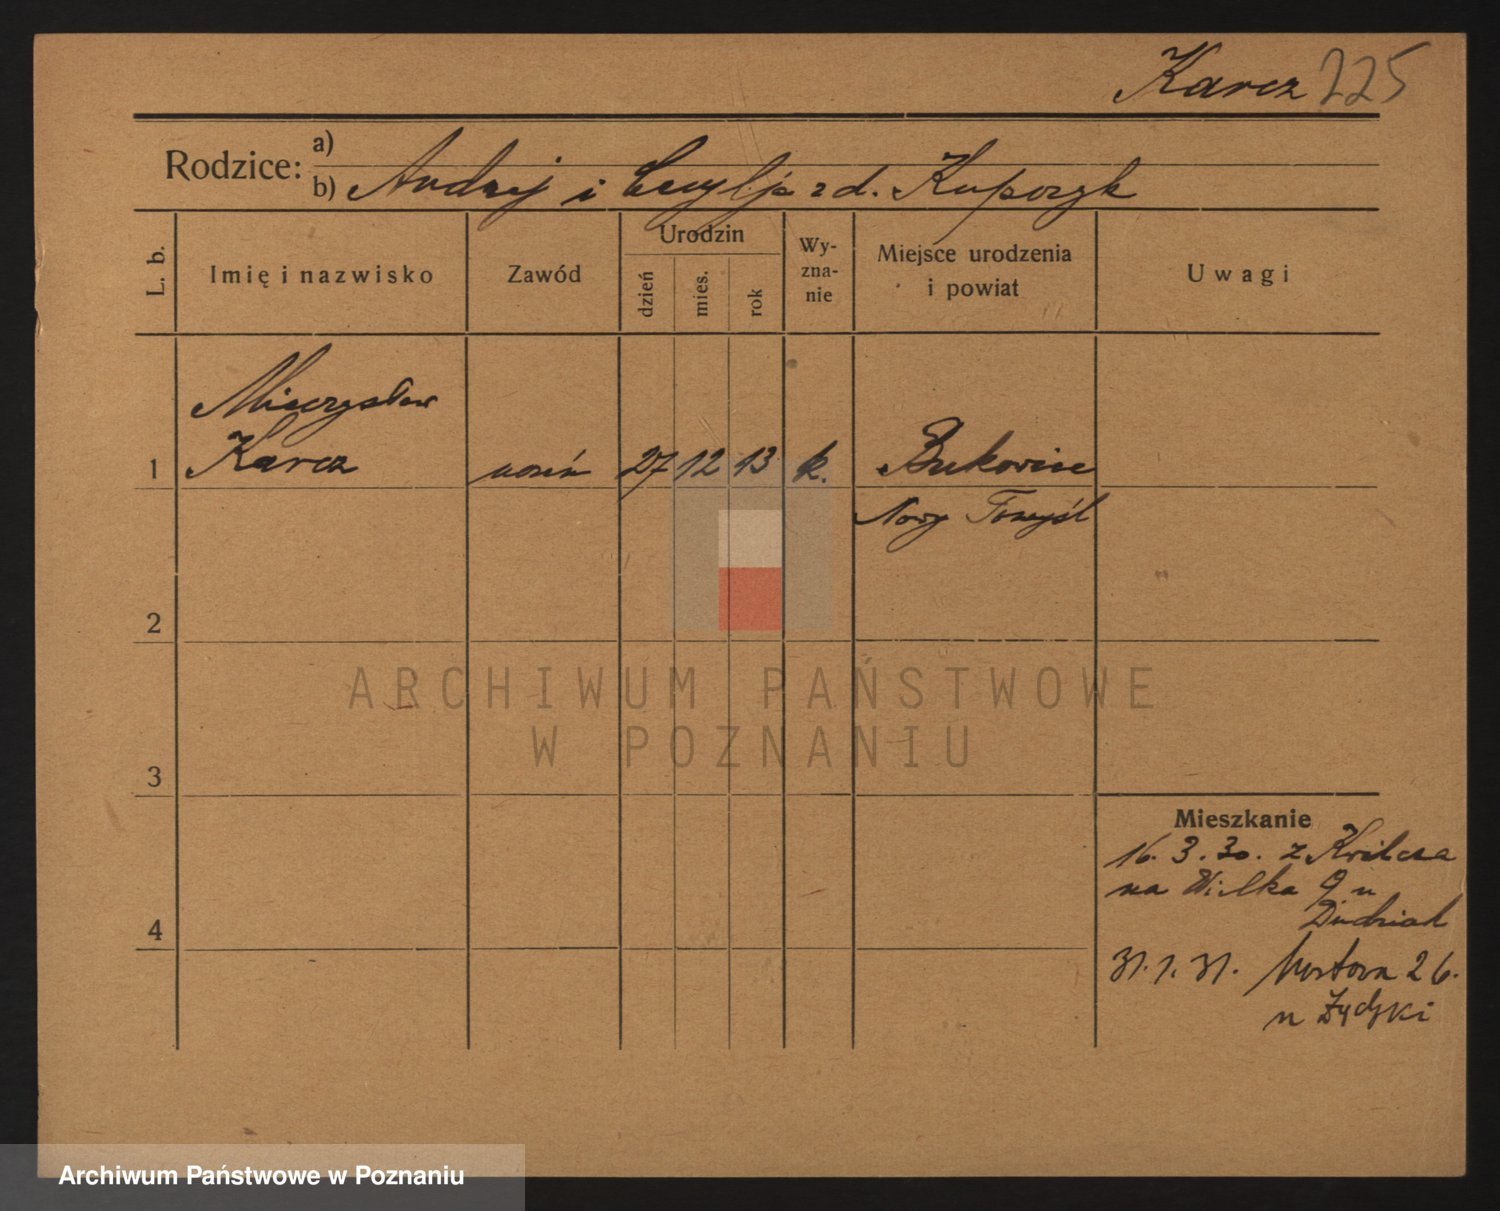 Karcz 225
Rodzice:
a)
b) Andrzej i Cecylja z d. Kupczyk
L. b.
Imię i nazwisko
Zawód
Urodzin
dzień
mies.
rok
Wy-
zna-
nie
Miejsce urodzenia
i powiat
Uwagi
Mieczysław
1 Karcz uczeń 27 12 13 k. Bukowiec
Nowy Tomyśl
2
3
4
Mieszkanie
16. 3. 30. z Kwilcza
na Wielka 9 u
31. 1. 31. 26.
u Żydyki
ARCHIWUM PAŃSTWOWE
W POZNANIU
Archiwum Państwowe w Poznaniu